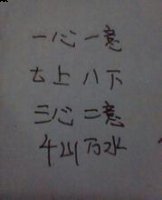 一心一意
七上八下
三心二意
千山万水